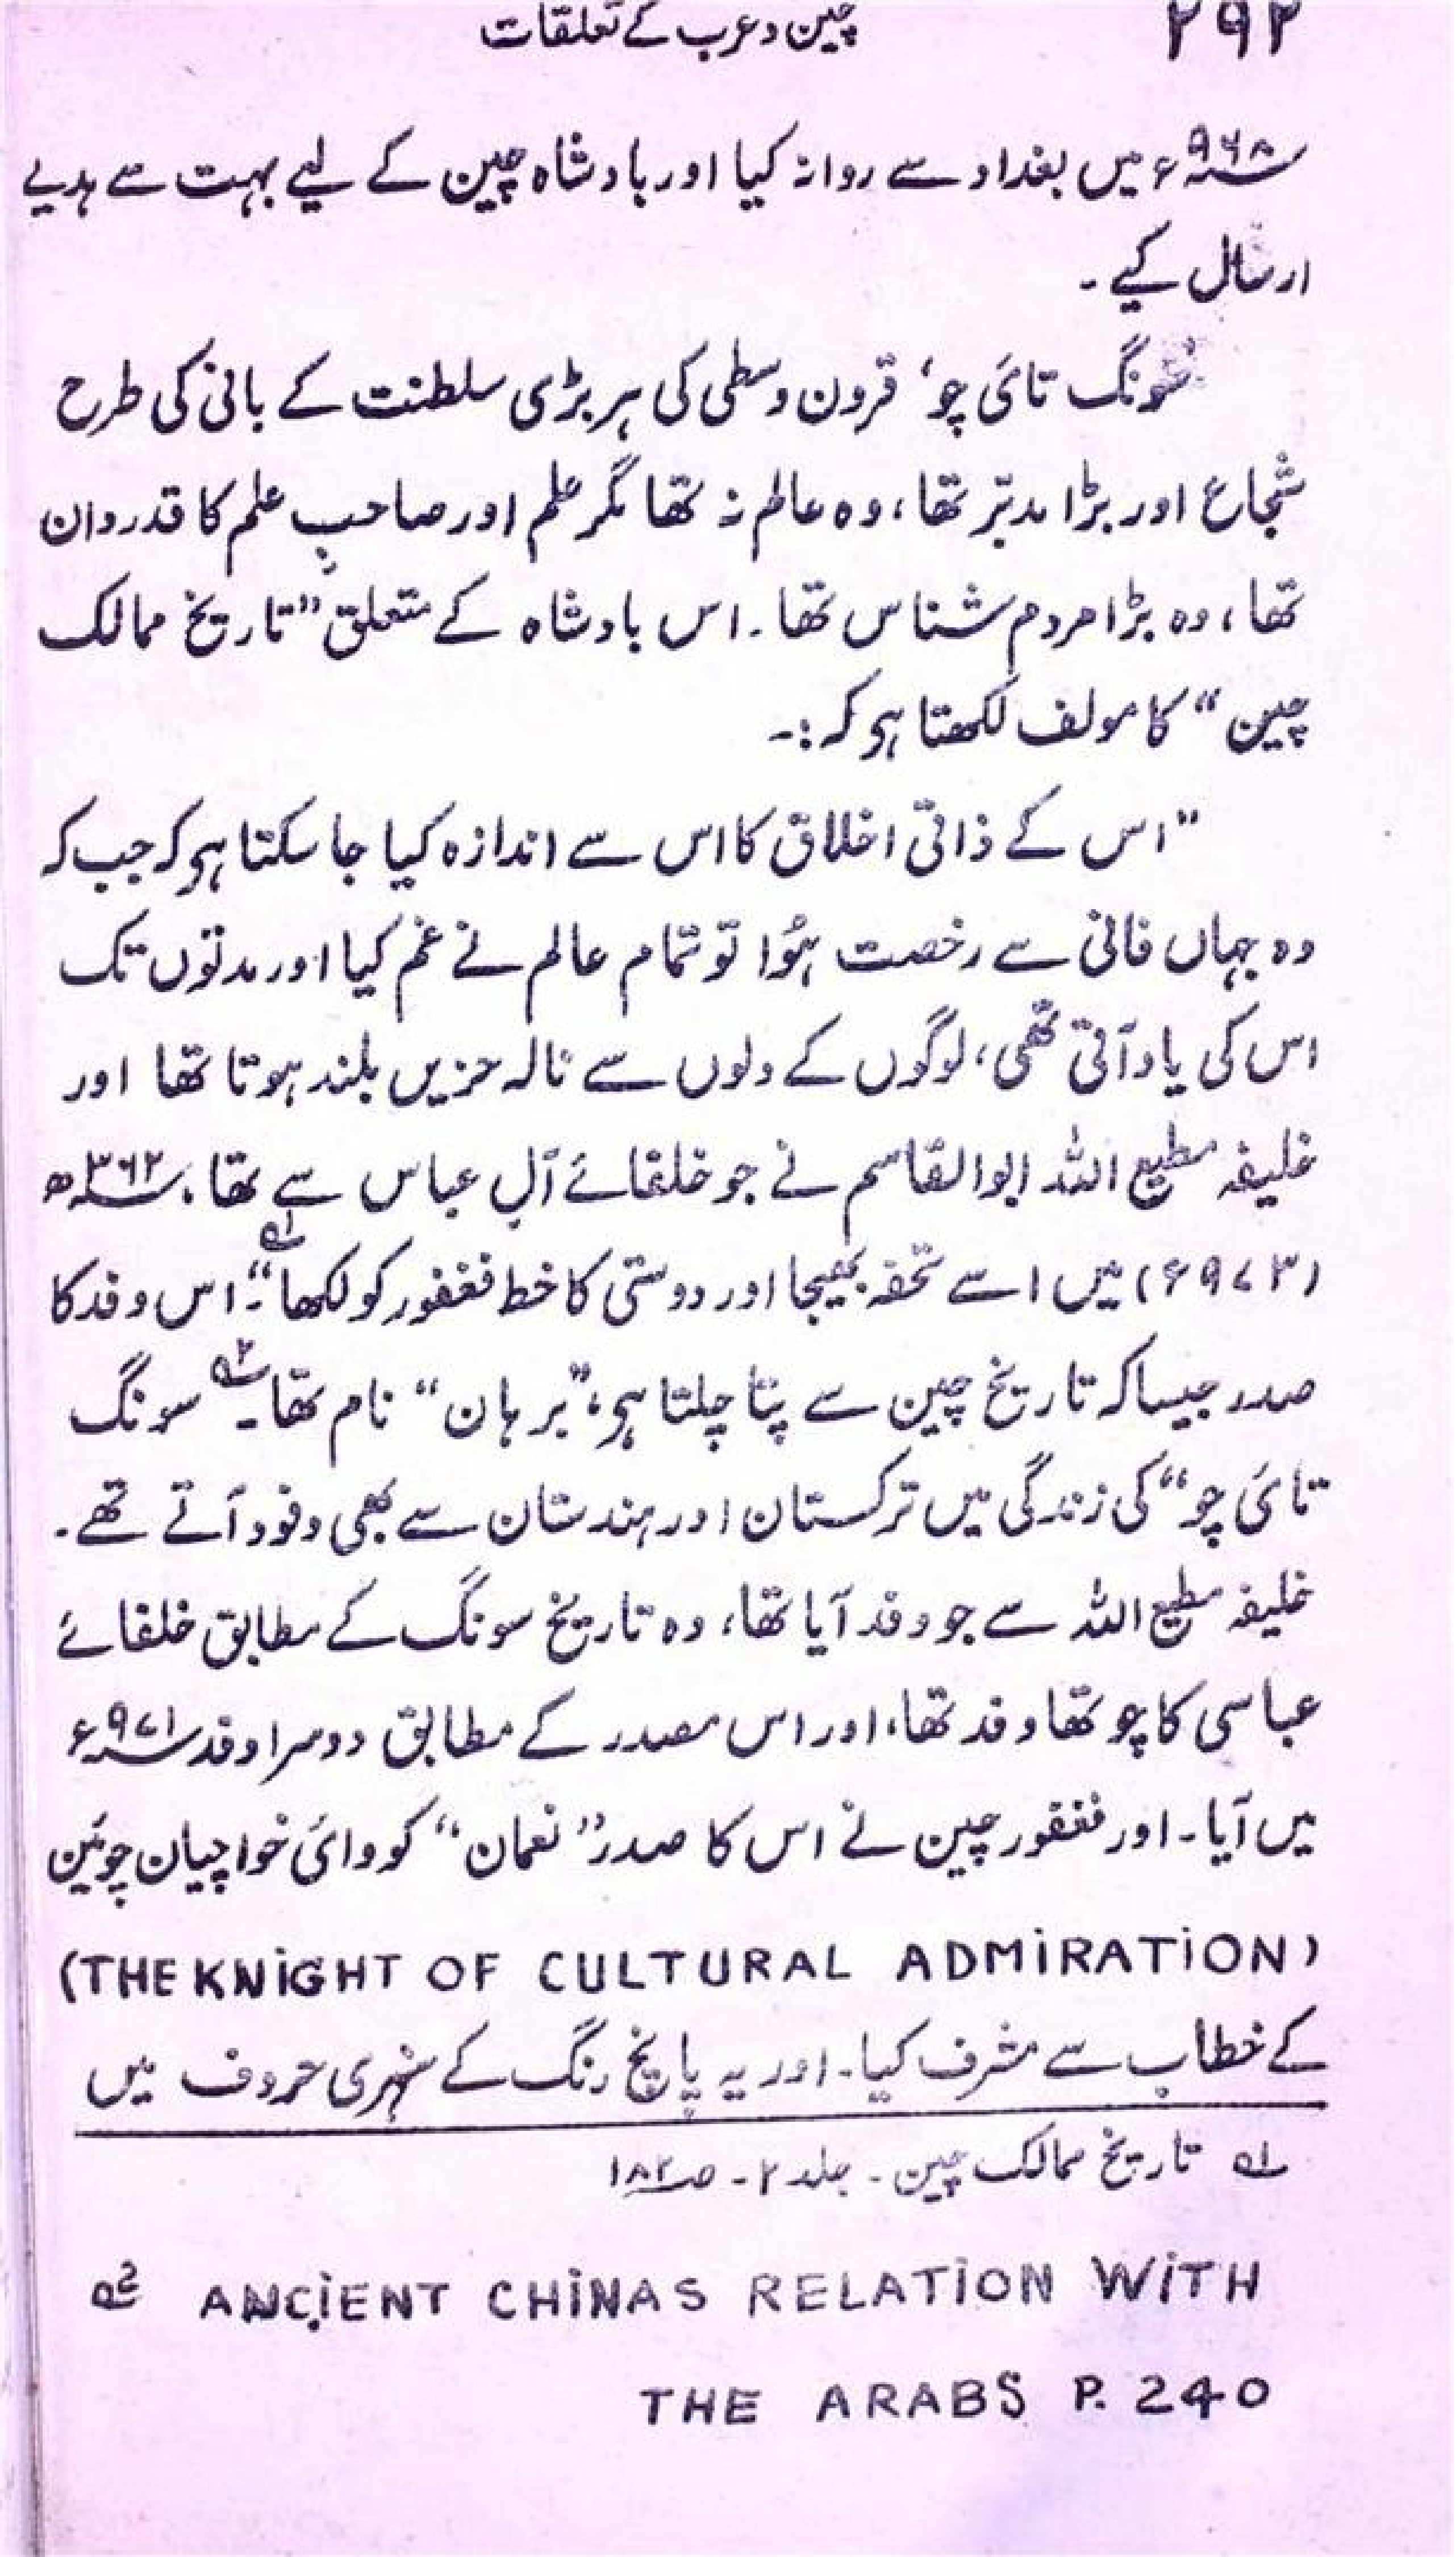 ۲۹۲
چین و عرب کے تعلقات
۹۶۸ء میں بغداد سے روانہ کیا اور بادشاہ چین کے لیے بہت سے ہدیے
ارسال کیے۔
سونگ تائی چو، قرون وسطی کی ہر بڑی سلطنت کے بانی کی طرح
شجاع اور بڑا مدبّر تھا، وہ عالم نہ تھا مگر علم اور صاحبِ علم کا قدردان
تھا، وہ بڑا مردم شناس تھا۔ اس بادشاہ کے متعلق ”تاریخ ممالک
چین“ کا مولف لکھتا ہو کہ:۔
”اس کے ذاتی اخلاق کا اس سے اندازہ کیا جا سکتا ہو کہ جب کہ
وہ جہاں فانی سے رخصت ہؤا تو تمام عالم نے غم کیا اور مدتوں تک
اس کی یاد آتی تھی، لوگوں کے دلوں سے نالہ حزیں بلند ہوتا تھا اور
خلیفہ مطیع اللہ ابوالقاسم نے جو خلفائے آلِ عباس سے تھا، ۳۶۲ھ
(۹۷۳ء) میں اسے تحفہ بھیجا اور دوستی کا خط فغفور کو لکھا“۔۱؎ اس وفد کا
صدر جیسا کہ تاریخ چین سے پتا چلتا ہو، ”برہان“ نام تھا۔۲؎ سونگ
تائی چو“ کی زندگی میں ترکستان اور ہندستان سے بھی وفود آتے تھے۔
خلیفہ مطیع اللہ سے جو وفد آیا تھا، وہ تاریخ سونگ کے مطابق خلفائے
عباسی کا چوتھا وفد تھا، اور اس مصدر کے مطابق دوسرا وفد ۹۷۱ء
میں آیا۔ اور فغفور چین نے اس کا صدر ”نعمان“ کو وائی خوا چیان چوئین
(THE KNIGHT OF CULTURAL ADMIRATION)
کے خطاب سے مشرف کیا۔ اور یہ پانچ رنگ کے سنہری حروف میں
۱؎ تاریخ ممالک چین۔ جلد ۲۔ صـ۱۸۲
۲؎ ANCIENT CHINAS RELATION WITH
THE ARABS P. 240